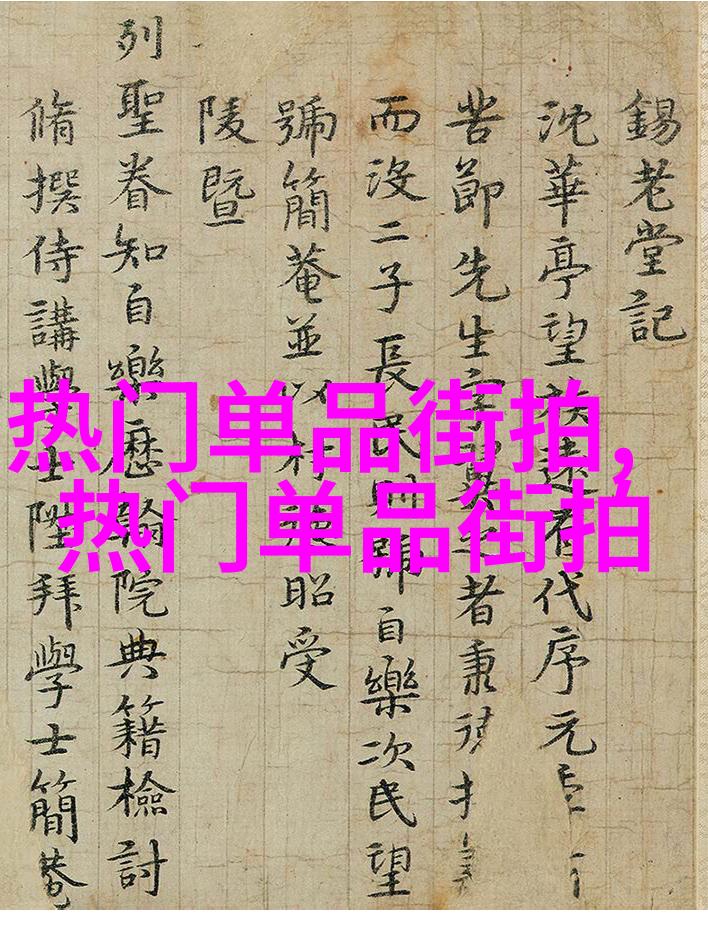 錫老堂記
沈華亭望族遠有代序元
苦節先生字者秉
而沒二子長民則號自樂次民望
號簡菴並以材昭受
陵暨
列聖眷知自樂歷翰院典籍檢討
脩撰侍講學士陞拜學士簡菴
热门单品街拍,
热门单品街拍